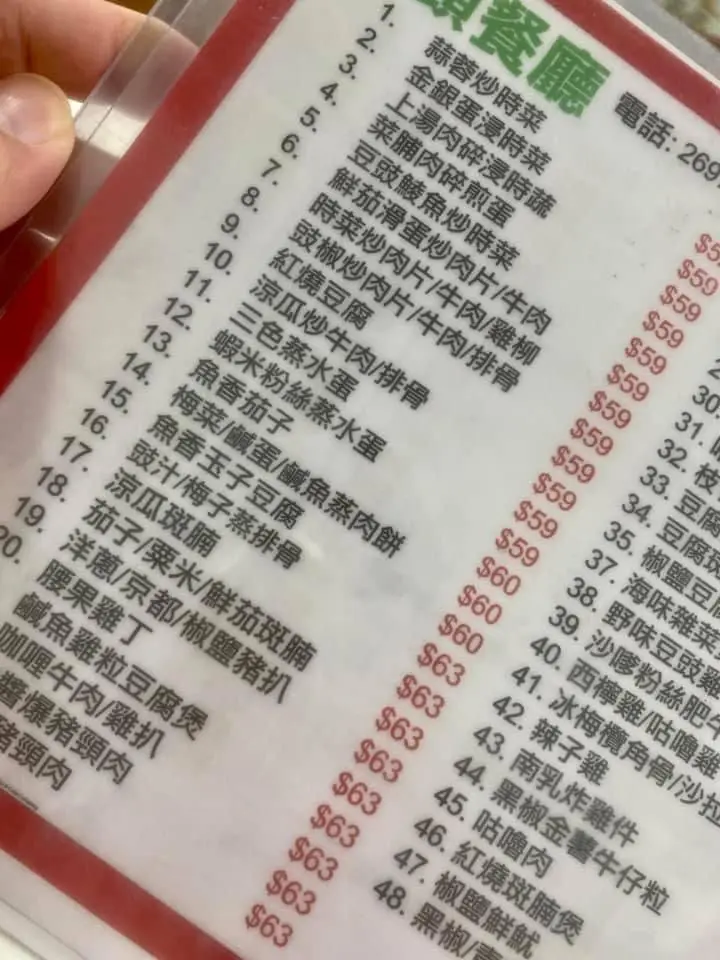 餐廳
電話: 269
1. 蒜蓉炒時菜
2. 金銀蛋浸時菜 $59
3. 上湯肉碎浸時蔬 $59
4. 菜脯肉碎煎蛋 $59
5. 豆豉鯪魚炒時菜 $59
6. 鮮茄滑蛋炒肉片/牛肉 $59
7. 時菜炒肉片/牛肉/雞柳 $59
8. 豉椒炒肉片/牛肉/排骨 $59
9. 紅燒豆腐 $59
10. 涼瓜炒牛肉/排骨 $59
11. 三色蒸水蛋 $59
12. 蝦米粉絲蒸水蛋 $59
13. 魚香茄子 $60
14. 梅菜/鹹蛋/鹹魚蒸肉餅 $60
15. 魚香玉子豆腐 $60
16. 豉汁/梅子蒸排骨 $63
17. 涼瓜斑腩 $63
18. 茄子/粟米/鮮茄斑腩 $63
19. 洋蔥/京都/椒鹽豬扒 $63
20. 腰果雞丁 $63
鹹魚雞粒豆腐煲 $63
咖喱牛肉/雞扒 $63
醬爆豬頸肉 $63
豬頸肉 $63
30.
31.
32. 枝
33. 豆腐
34. 豆腐斑
35. 椒鹽豆
37. 海味雜菜
38. 野味豆豉雞
39. 沙爹粉絲肥牛
40. 西檸雞/咕嚕雞
41. 冰梅欖角骨/沙拉
42. 辣子雞
43. 南乳炸雞件
44. 黑椒金薯牛仔粒
45. 咕嚕肉
46. 紅燒斑腩煲
47. 椒鹽鮮魷
48. 黑椒/